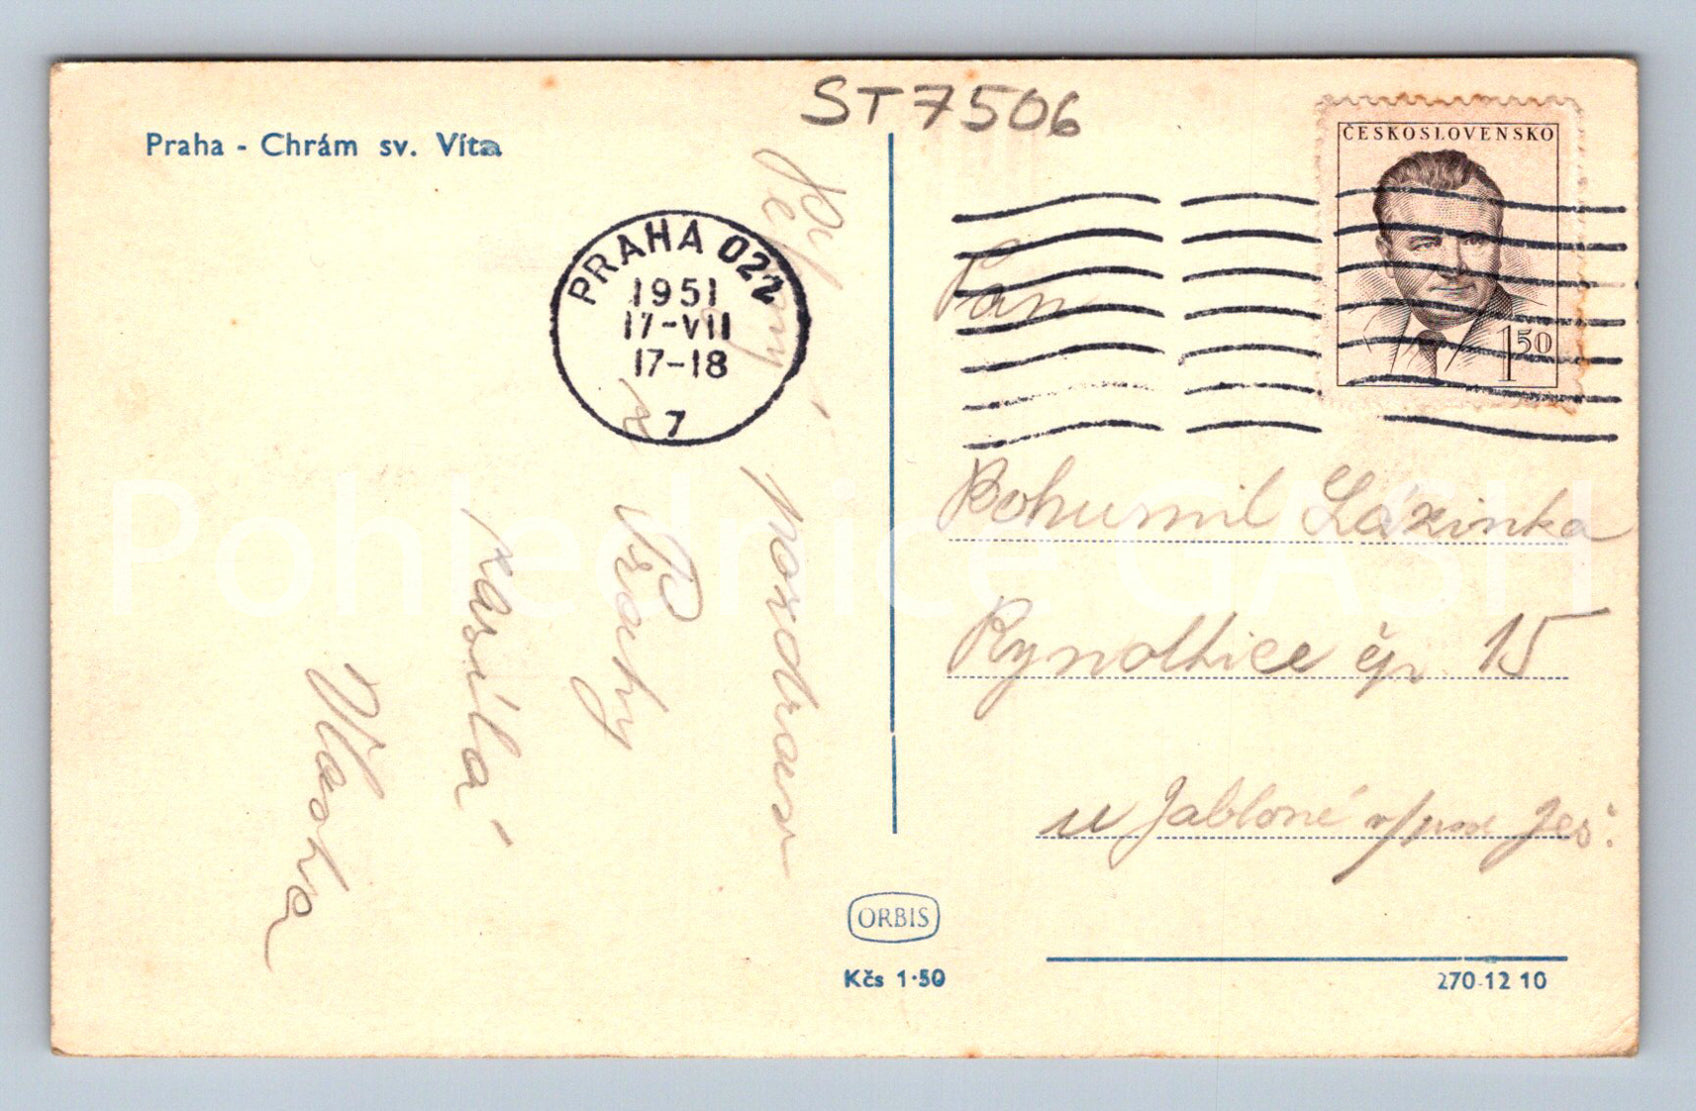 ST7506
Praha - Chrám sv. Víta
ČESKOSLOVENSKO
1 50
PRAHA 022
1951
17-VII
17-18
7
Pan
Bohumil Lázinka
Rynoltice čp. 15
u Jabloné v/pod Ješ:
pozdrav
z Prahy
zasílá
Vlasta
ORBIS
Kčs 1·50
270-12 10
Pohlednice GASH